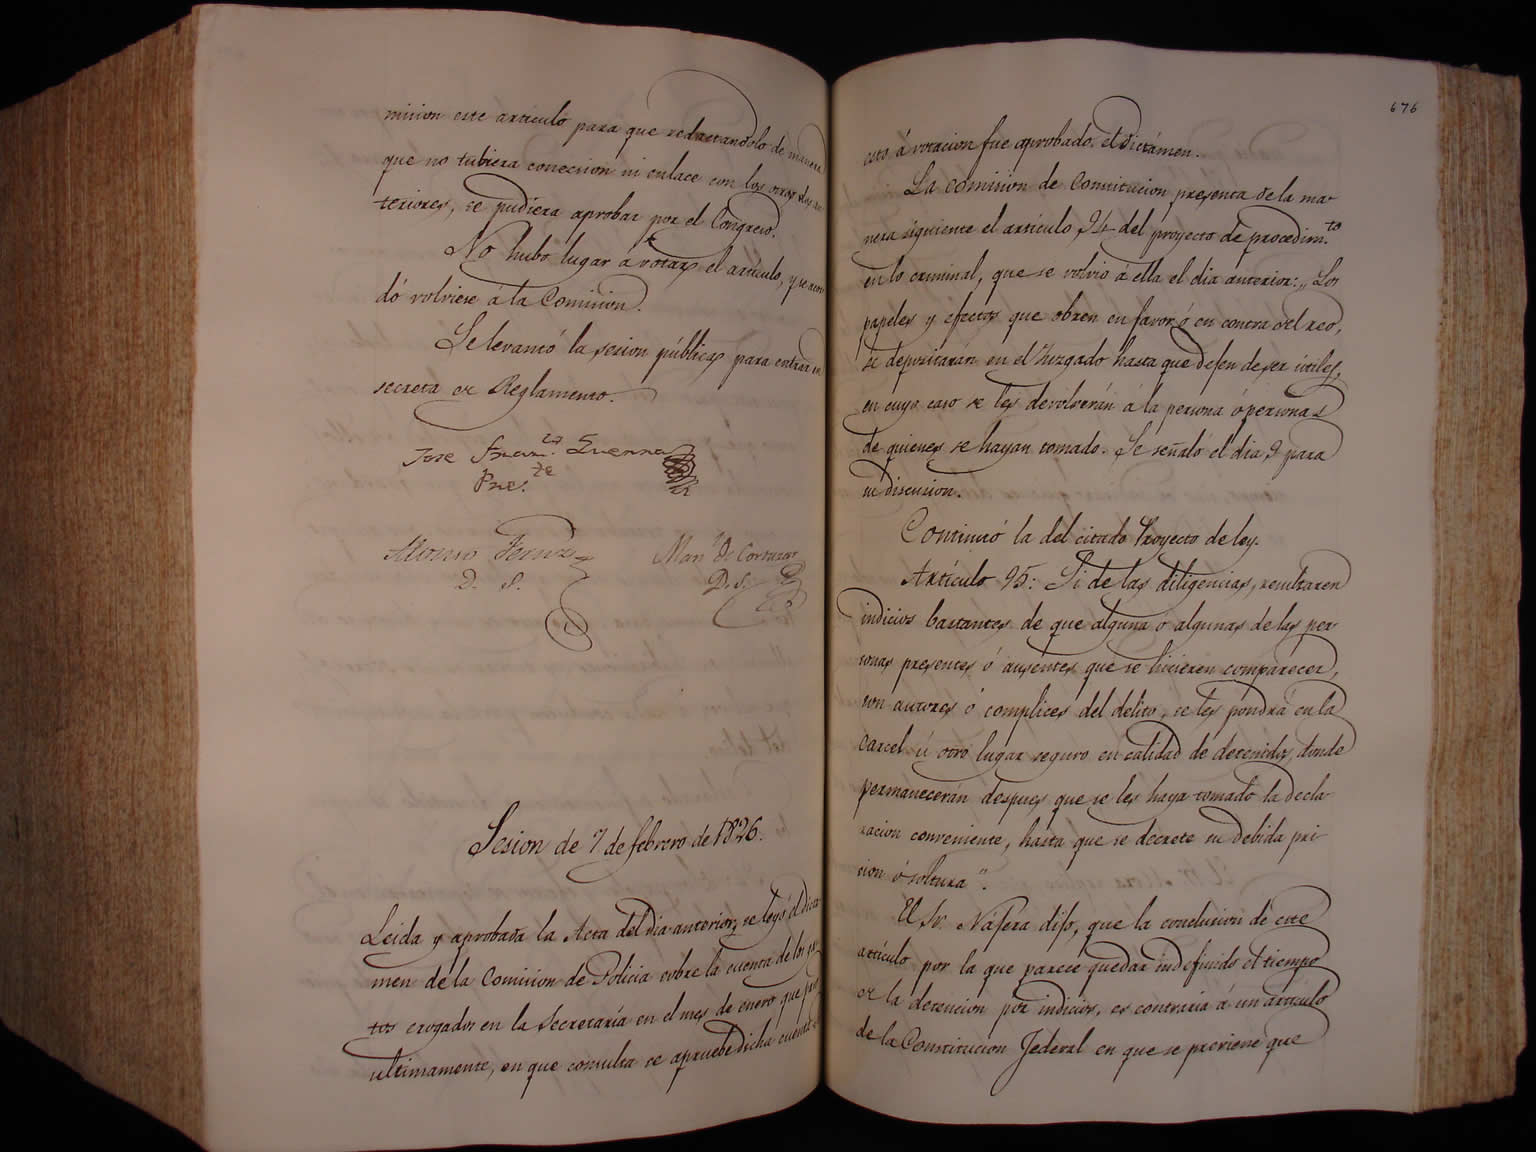 mision este articulo para que redactandolo de manera
que no tubiera coneccion ni enlace con los otros
teriores, se pudiera aprobar por el Congreso.
No hubo lugar á votar el artículo, y se acor
dó volviese á la Comision.
Se levantó la sesion pública para entrar en
secreta de Reglamento.
José Fran.co Guerra
Pre.te
Alonso Fernz
D. S.
Man.l de Cortazar
D. S.
Sesion de 7 de febrero de 1826.
Leida y aprobada la Acta del dia anterior, se leyó el dicta
men de la Comision de Policia sobre la cuenta de los gas
tos erogados en la Secretaría en el mes de enero que pasó
ultimamente, en que consulta se apruebe dicha cuenta
676
esto á votacion fue aprobado el dictámen.
La comision de Constitucion presenta de la ma-
nera siguiente el artículo 94 del proyecto de procedim.to
en lo criminal, que se volvió á ella el dia anterior: „Los
papeles y efectos que obren en favor ó en contra del reo,
se depositarán en el Juzgado hasta que dejen de ser útiles,
en cuyo caso se les devolverán á la persona ó personas
de quienes se hayan tomado. Se señaló el dia 9 para
su discusion.
Continuó la del citado Proyecto de ley.
Artículo 95: Si de las diligencias, resultaren
indicios bastantes de que alguna ó algunas de las per-
sonas presentes ó ausentes que se hicieren comparecer,
son autores ó complices del delito, se les pondrá en la
carcel ú otro lugar seguro en calidad de detenidos, donde
permanecerán despues que se les haya tomado la decla-
racion conveniente, hasta que se decrete su debida pri-
sion ó soltura".
El Sr. Nájera dijo, que la conclusion de este
artículo por la que parece quedar indefinido el tiempo
de la detencion por indicios, es contraria á un artículo
de la Constitucion Federal en que se previene que